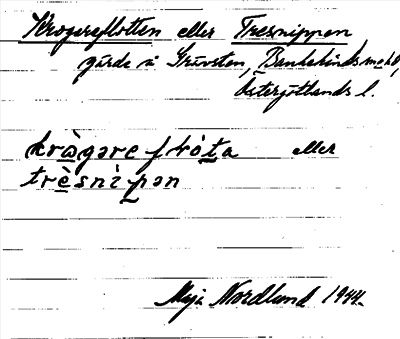 Krogareflotten eller Tresnippen,
gärde i Grüvsten, Bankekinds m
Östergötlands l.
kràgare flòta eller
trèsnìpən
Maja Nordlund 1944.